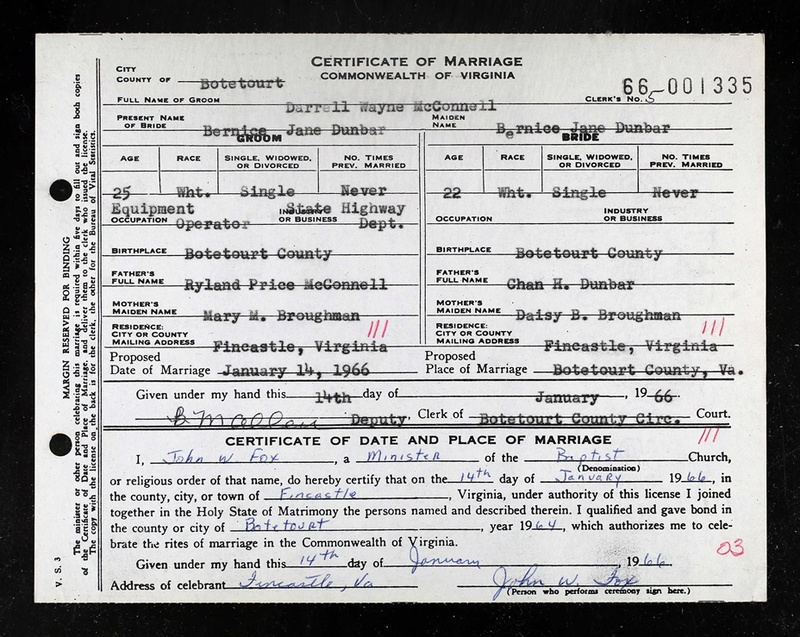 CERTIFICATE OF MARRIAGE
COMMONWEALTH OF VIRGINIA
CITY
COUNTY OF Botetourt
66-001335
CLERK'S NO. 5
FULL NAME OF GROOM Darrell Wayne McConnell
PRESENT NAME OF BRIDE Bernice Jane Dunbar MAIDEN NAME Bernice Jane Dunbar
GROOM BRIDE
AGE RACE SINGLE, WIDOWED, OR DIVORCED NO. TIMES PREV. MARRIED AGE RACE SINGLE, WIDOWED, OR DIVORCED NO. TIMES PREV. MARRIED
25 Wht. Single Never 22 Wht. Single Never
Equipment State Highway
OCCUPATION Operator INDUSTRY OR BUSINESS Dept. OCCUPATION INDUSTRY OR BUSINESS
BIRTHPLACE Botetourt County BIRTHPLACE Botetourt County
FATHER'S FULL NAME Ryland Price McConnell FATHER'S FULL NAME Chan H. Dunbar
MOTHER'S MAIDEN NAME Mary M. Broughman MOTHER'S MAIDEN NAME Daisy B. Broughman
RESIDENCE: CITY OR COUNTY MAILING ADDRESS Fincastle, Virginia 111 RESIDENCE: CITY OR COUNTY MAILING ADDRESS Fincastle, Virginia 111
Proposed Date of Marriage January 14, 1966 Proposed Place of Marriage Botetourt County, Va.
Given under my hand this 14th day of January, 1966
Deputy, Clerk of Botetourt County Circ. Court.
CERTIFICATE OF DATE AND PLACE OF MARRIAGE 111
I, John W Fox, a Minister of the Baptist Church,
(Denomination)
or religious order of that name, do hereby certify that on the 14th day of January 1966, in
the county, city, or town of Fincastle, Virginia, under authority of this license I joined
together in the Holy State of Matrimony the persons named and described therein. I qualified and gave bond in
the county or city of Botetourt, year 1964, which authorizes me to cele-
brate the rites of marriage in the Commonwealth of Virginia.
03
Given under my hand this 14th day of January, 1966.
Address of celebrant Fincastle, Va John W. Fox
(Person who performs ceremony sign here.)
V. S. 3
MARGIN RESERVED FOR BINDING
The minister or other person celebrating this marriage, is required within five days to fill out and sign both copies
of the Certificate of Date and Place of Marriage, and deliver them to the clerk who issued the license.
The copy with the license on the back is for the clerk, the other for the Bureau of Vital Statistics.